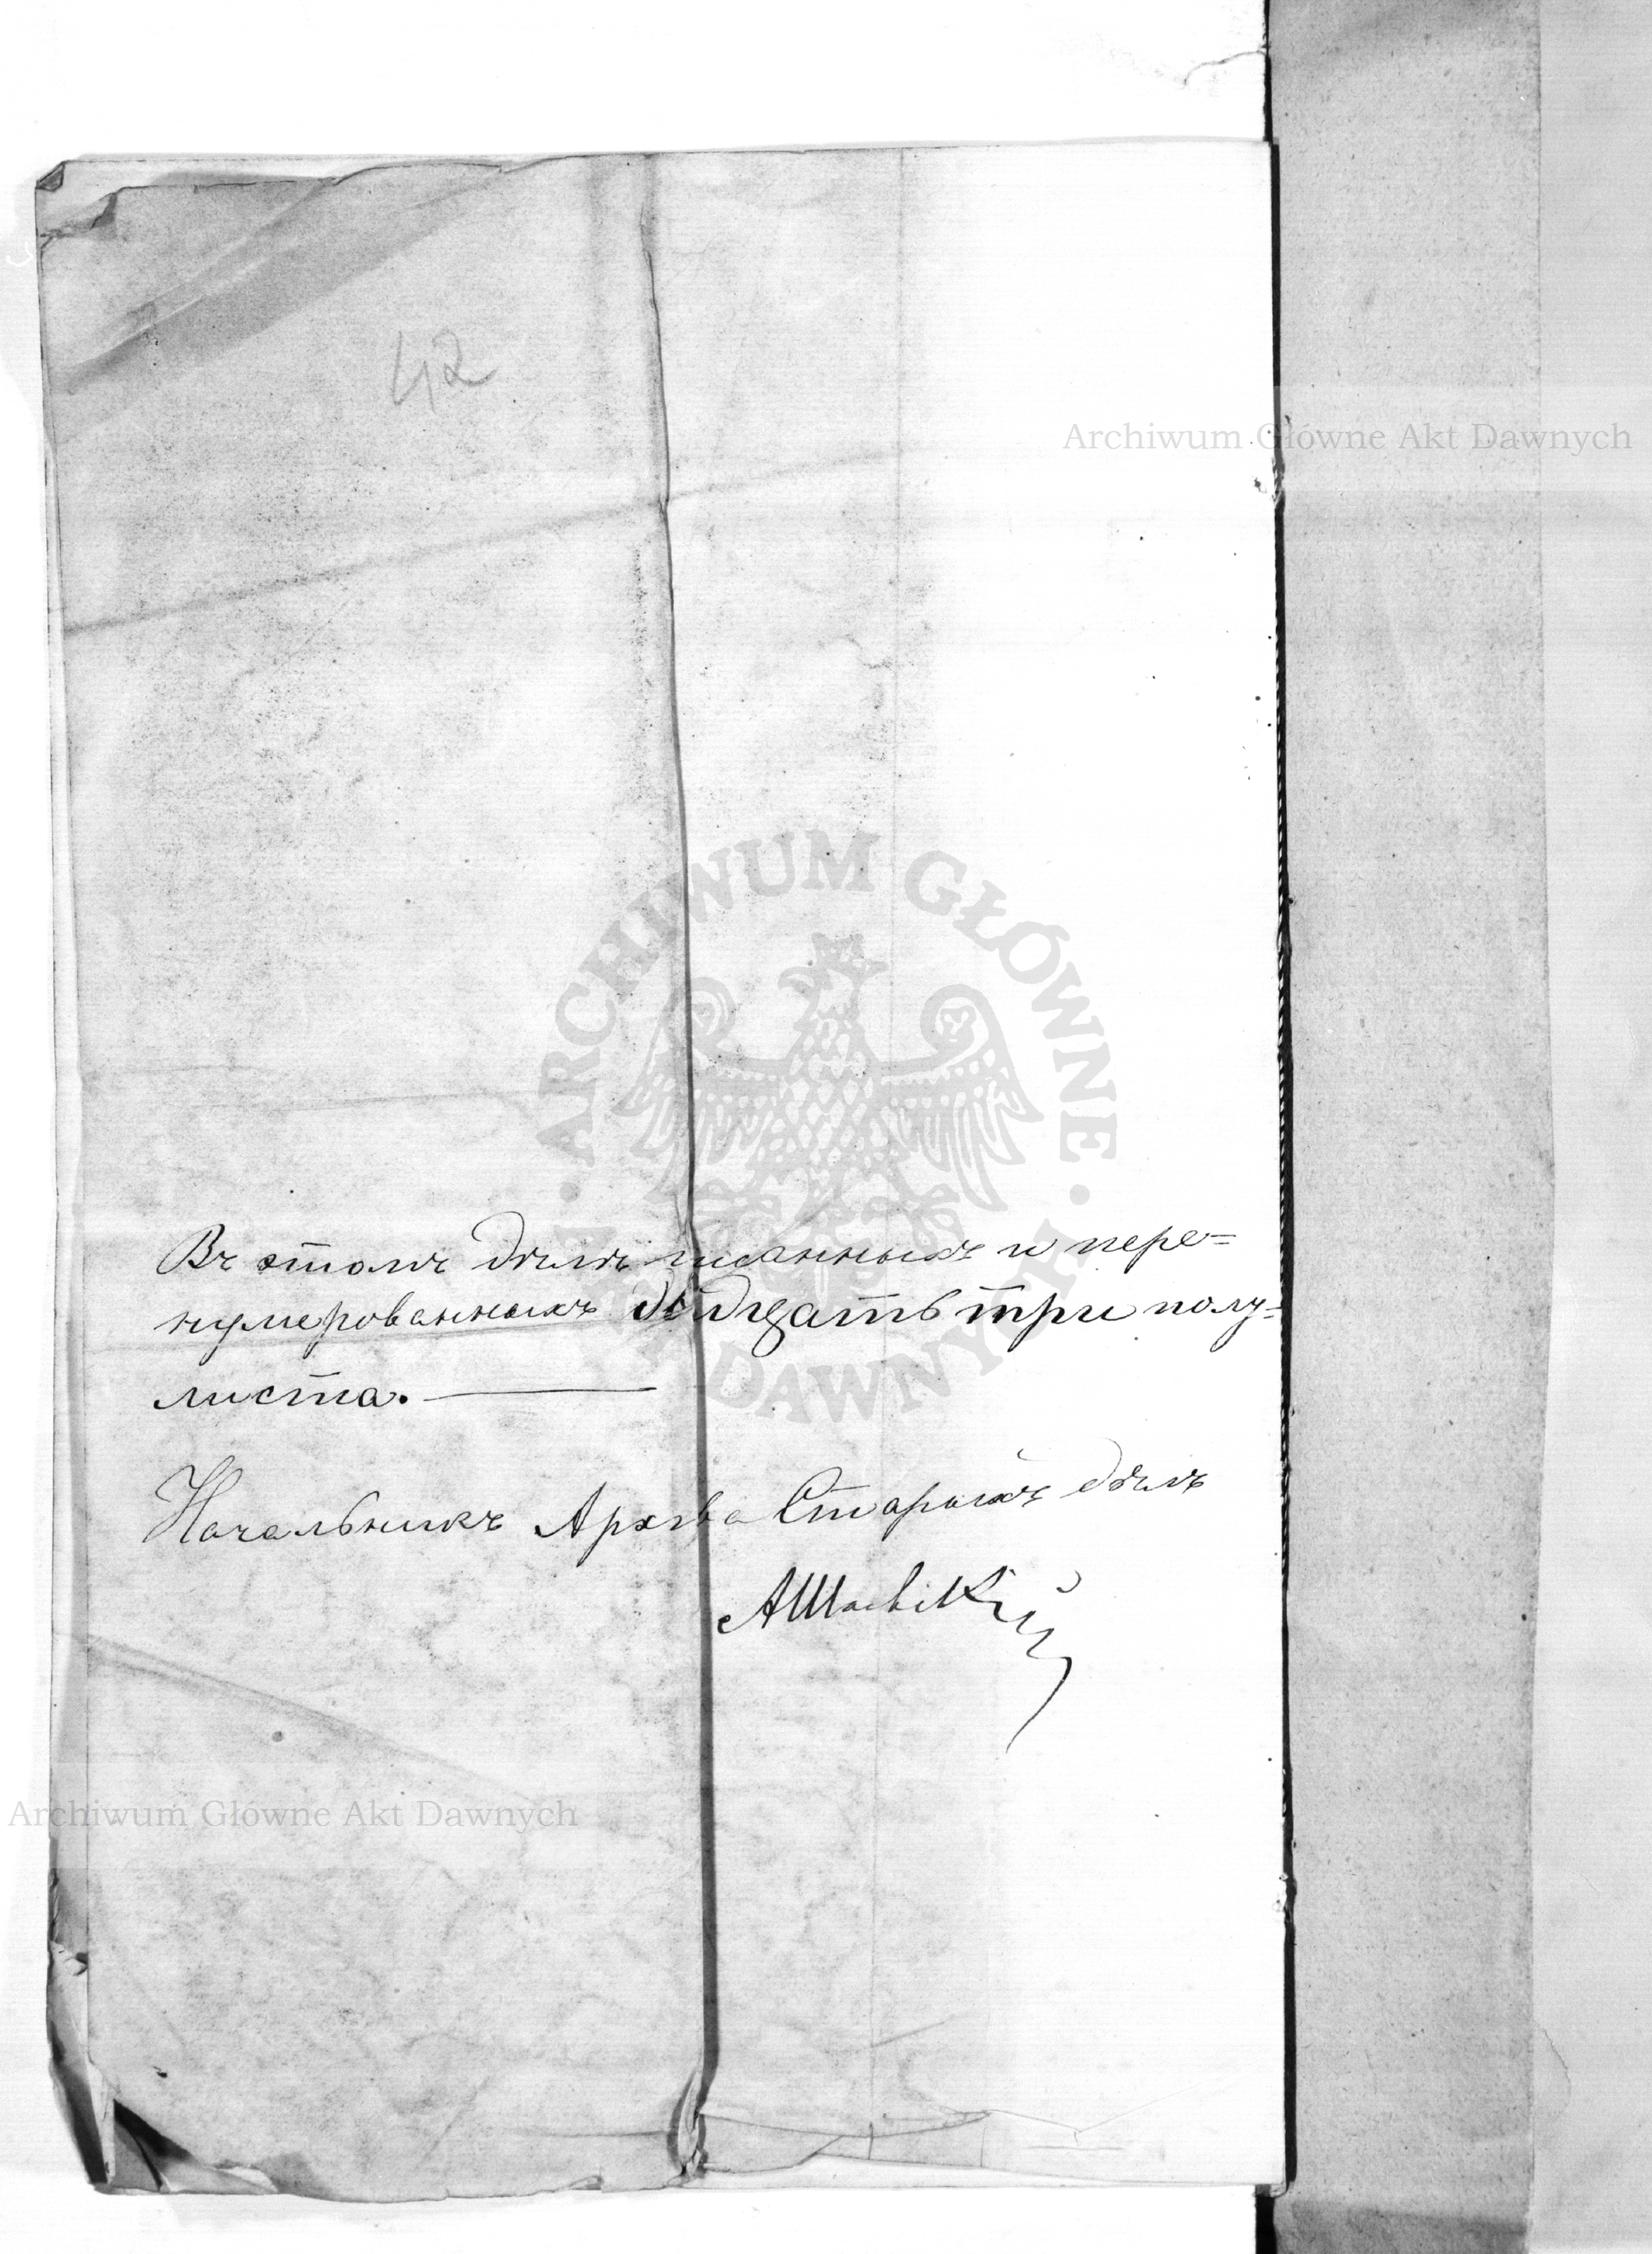 42
Archiwum Główne Akt Dawnych
ARCHIWUM GŁÓWNE
AKT DAWNYCH
Въ этомъ дѣлѣ писанныхъ и пере=
нумерованныхъ двадцать три полу=
листа.
Начальникъ Архива Старыхъ дѣлъ
Archiwum Główne Akt Dawnych